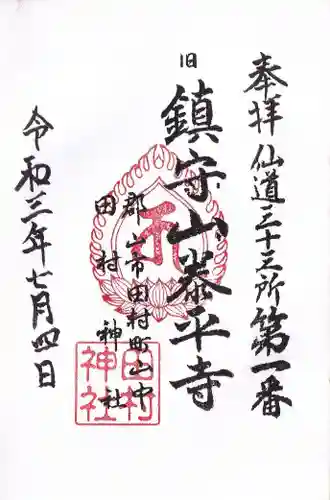 奉拝仙道三十三所第一番
旧
鎮守山泰平寺
郡山市田村町山中
田村神社
令和三年七月四日
田村
神社